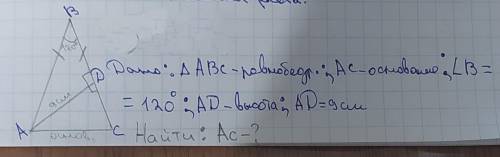 B
120°
D
9см
A
C
основ.
Дано: Δ ABC - равнобедр.; AC - основание; ∠B =
= 120°; AD - высота; AD = 9см
Найти: AC - ?